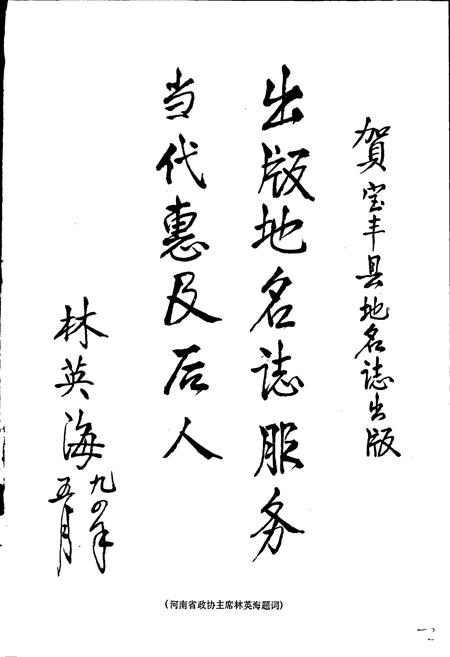 贺宝丰县地名誌出版
出版地名誌服务
当代惠及后人
林英海
九四年
五月
(河南省政协主席林英海题词)